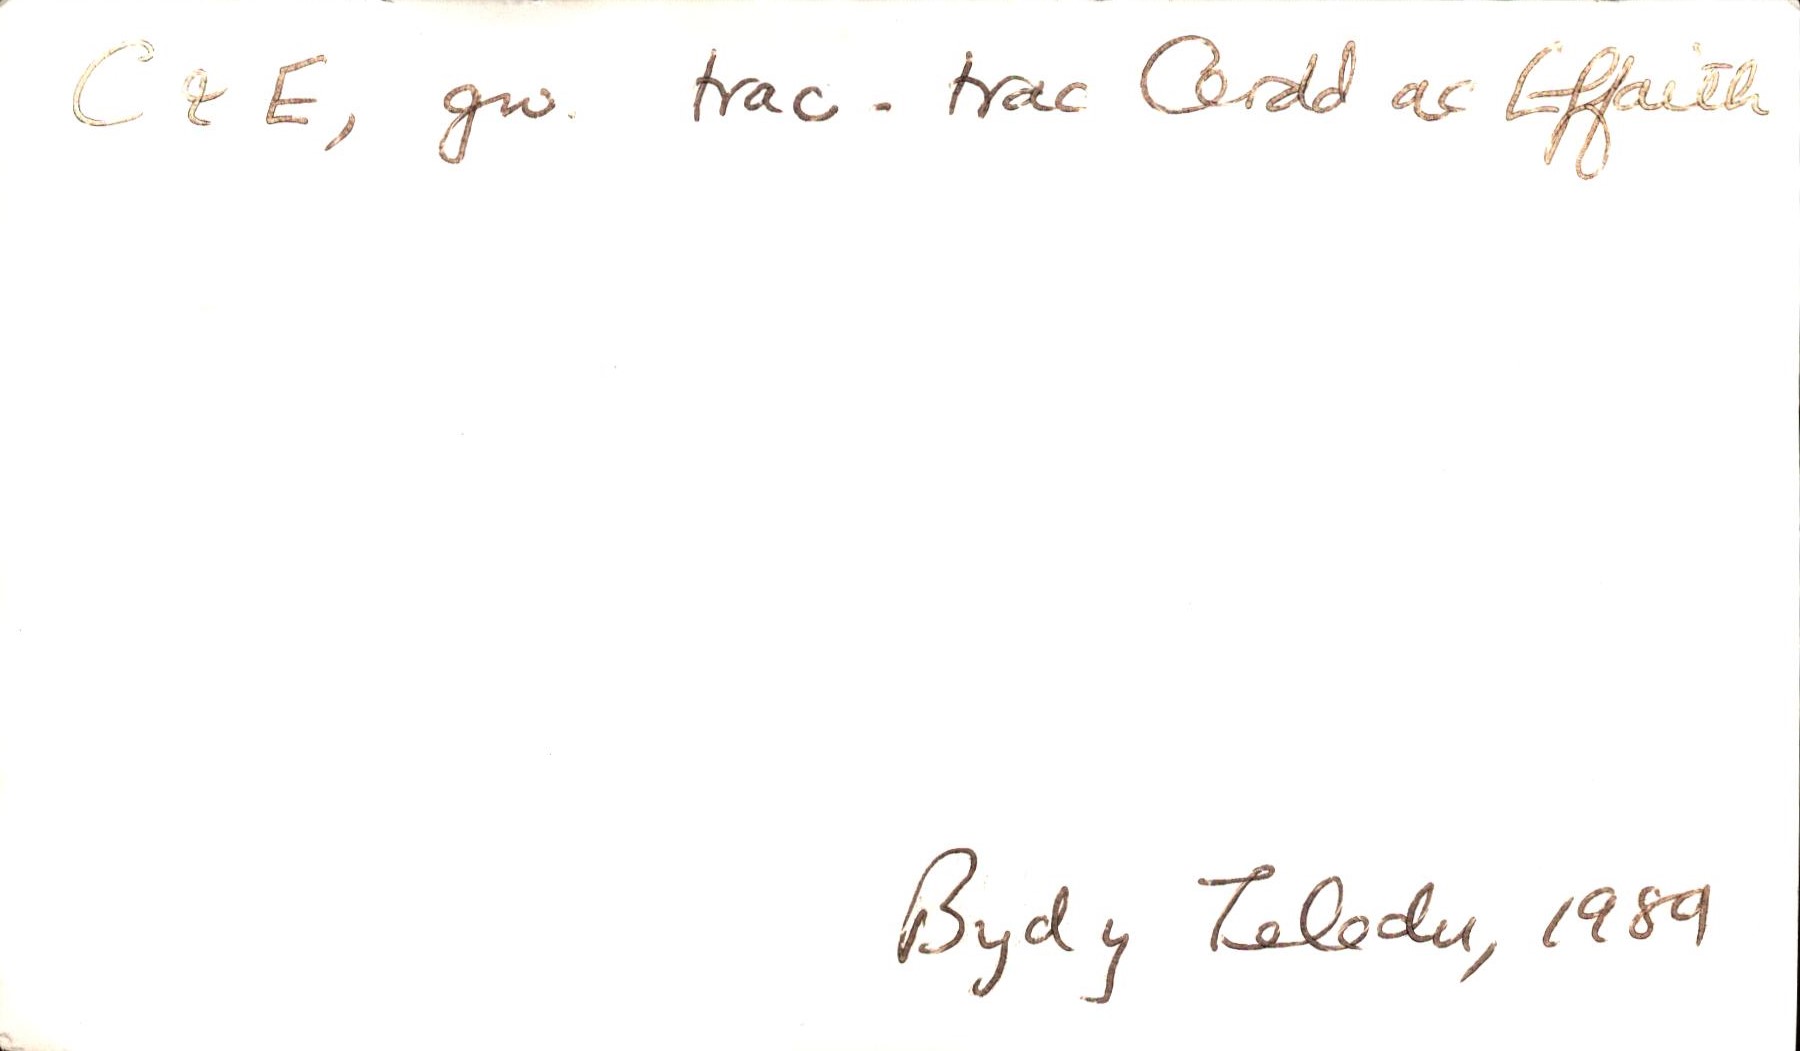 C & E, gw. trac - trac Cerdd ac Effaith
Byd y Teledu, 1989